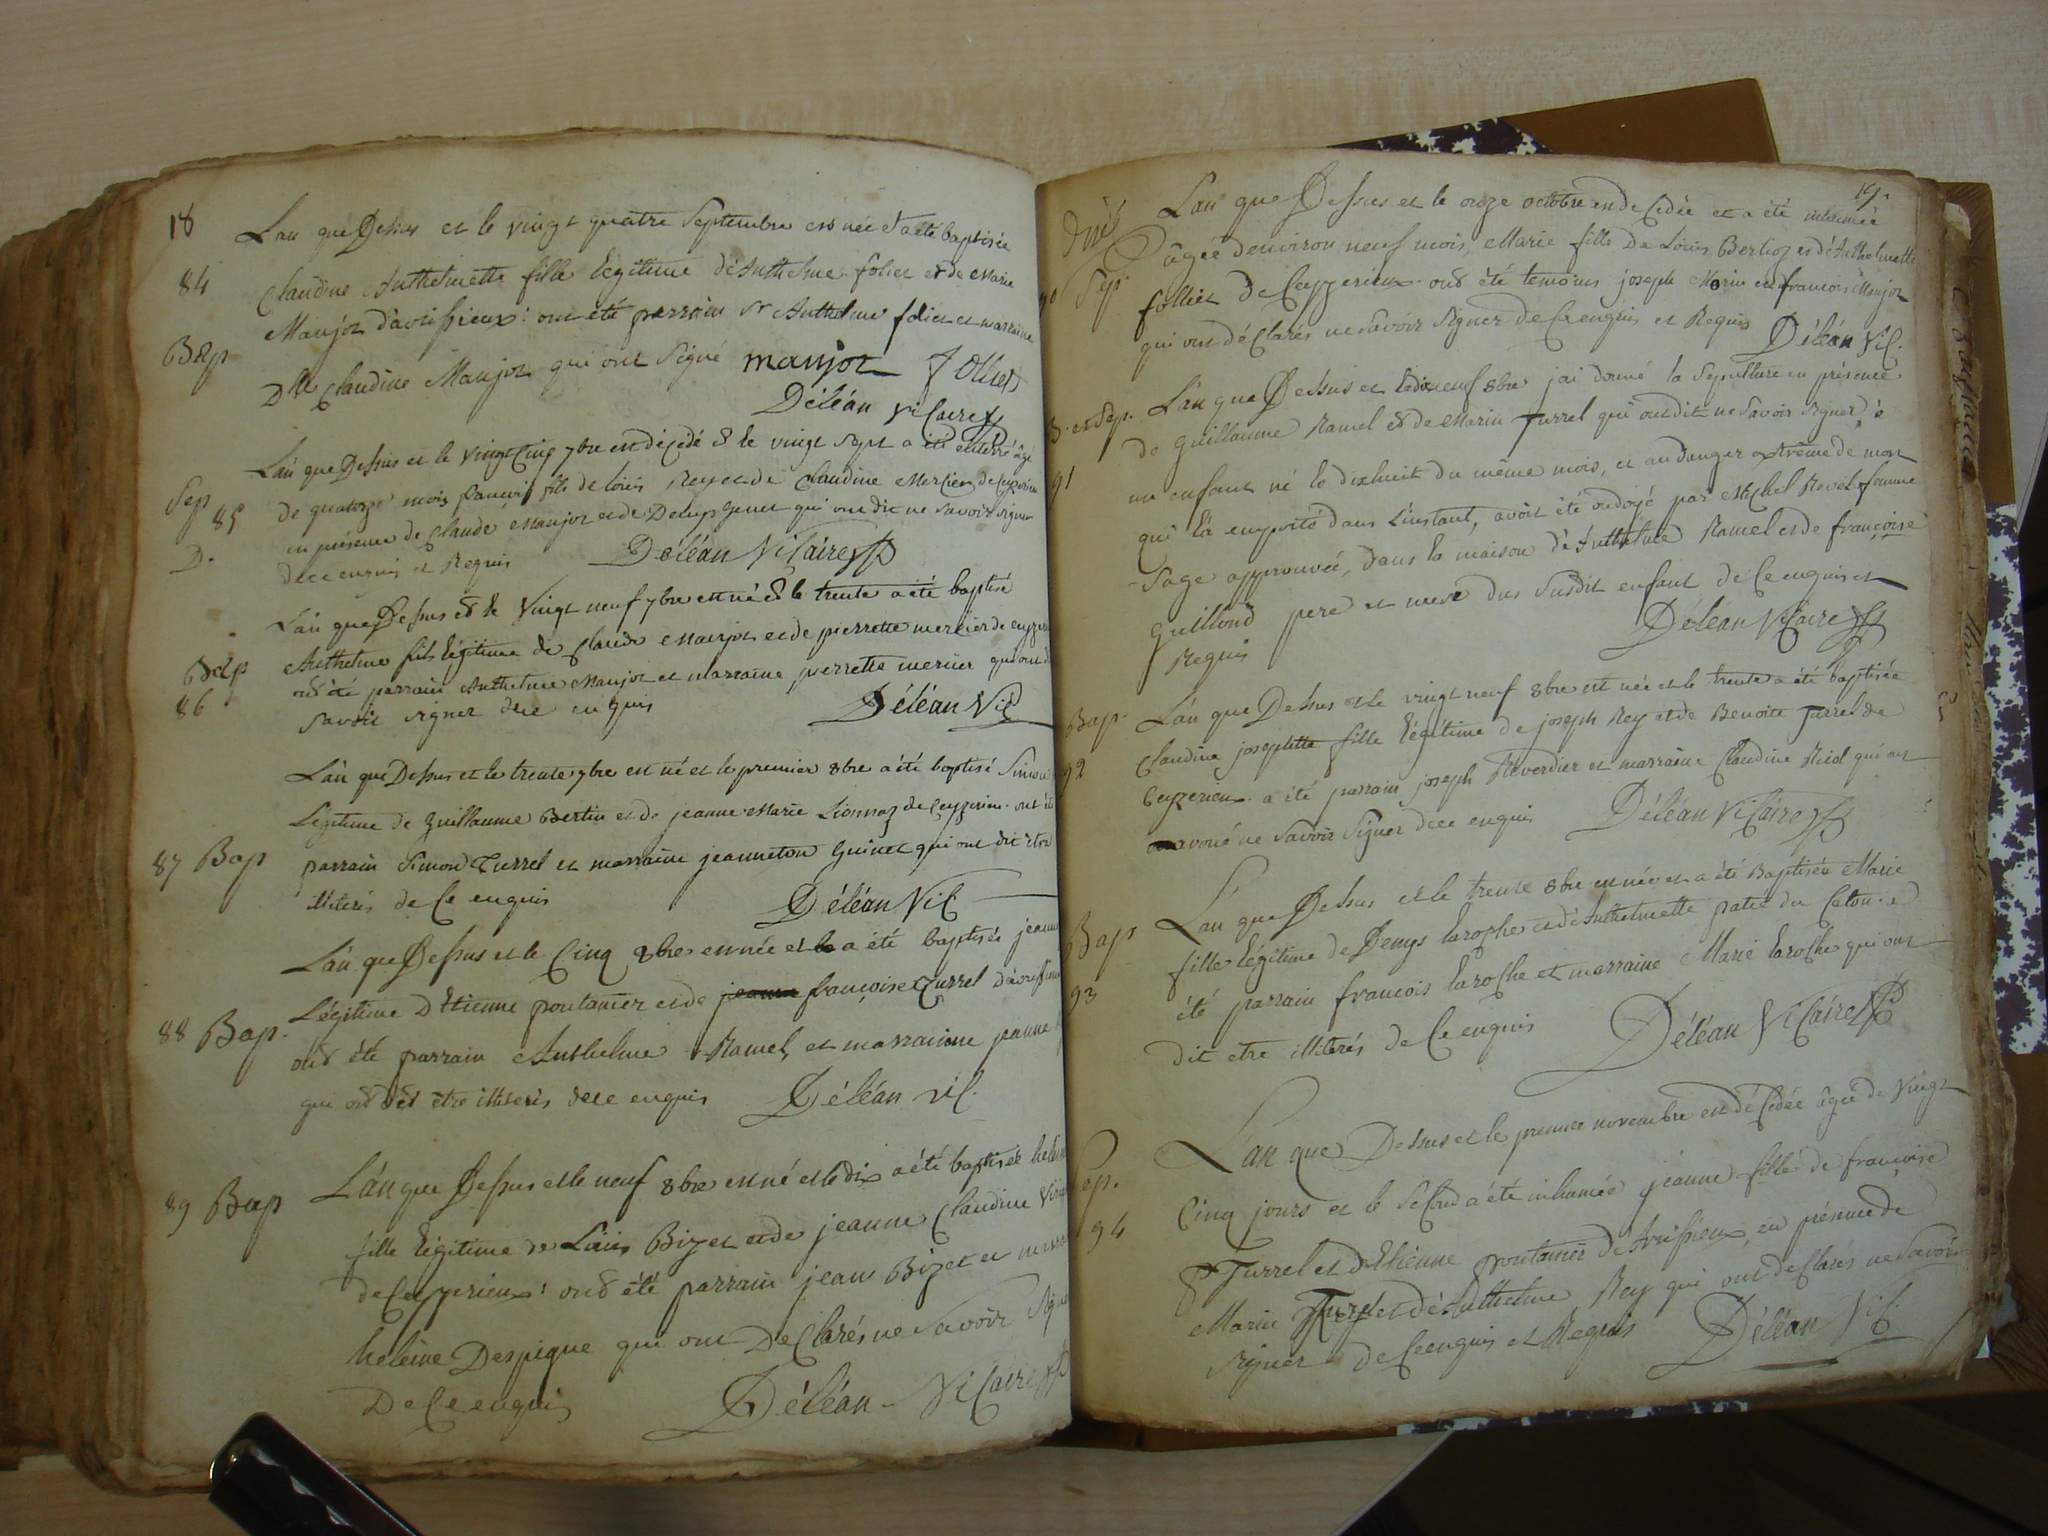 18
L'an que Dessus et le vingt quatre Septembre est née et a été baptisée
84
Claudine Anthelmette fille légitime d'Anthelme folliet et de Marie
Manjot d'avrissieux : ont été parrain Sr Anthelme foliet et marraine
Bap
Dlle Claudine Manjot qui ont signé manjot folliet
Déléan Vicaire
L'an que Dessus et le vingt Cinq 7bre est décédé et le vingt sept a été enterré âgé
Sep
de quatorze mois francois fils de loüis Rey et de Claudine Mercier de Ceyzerieu
85
en présence de Claude Manjot et de genet qui ont dit ne savoir signer
D.
de ce enquis et Requis Deléan Vicaire
L'an que Dessus et le Vingt neuf 7bre est né et le trente a été baptisé
Bap
Anthelme fils légitime de Claude Manjot et de pierrette mercier de
86
ont été parrain Anthelme Manjot et Marraine pierrette mercier qui ont
savoir signer de ce enquis Déléan Vic
L'an que Dessus et le trente 7bre est né et le premier 8bre a été baptisé Simon
Légitime de guillaume Bertin et de jeanne Marie Lionnaz de Ceyzerieu ont été
87 Bap
parrain Simond Turrel et marraine jeanneton Guinet qui ont dit être
illiterés de Ce enquis Déléan Vic
L'an que Dessus et le Cinq 8bre est née et le a été baptisée jeanne
Légitime d'Etienne pontanier et de jeanne françoise Turrel d'avrissieux
88 Bap.
ont été parrain Anthelme Ramel, et marraine jeanne
qui ont dit être illiterés de ce enquis Déléan vic.
89 Bap
L'an que Dessus et le neuf 8bre est né et le dix a été baptisée helene
fille légitime de Loüis Bizet et de jeanne Claudine
de Ceyzerieux : ont été parrain jean Bizet et
heleine Despigne qui ont DeClarés ne Savoir signer
De Ce enquis Déléan Vicaire
19.
L'an que Dessus et le onze octobre est décédée et a été inhumée
90 Sep
âgée d'environ neuf mois, Marie fille de Loüis Berlioz et d'Anthelmette
folliet de Ceyzerieux. ont été temoins joseph Morin et francois Manjot
qui ont déClarés ne savoir signer de Ce enquis et Requis Déléan Vic.
B. et Sep.
L'an que Dessus et le dix neuf 8bre jai donné la sepulture en présence
de guillaume Ramel et de Marin Turrel qui ont dit ne savoir signer à
91
un enfant né le dixhuit du même mois, et au danger extrême de mort
qui l'a emporté dans l'instant, avoit été ondoyé par Michel Revel femme
sage approuvée, dans la maison d'Anthelme Ramel et de françoise
guillond pere et mere dus susdit enfant de Ce enquis et
Requis Déléan Vicaire
Bap.
L'an que Dessus et le vingt neuf 8bre est née et le trente a été baptisée
92
Claudine josephette fille légitime de joseph Rey et de Benoite Turrel de
Ceyzerieux. a été parrain joseph Reverdier et marraine Claudine Ried qui ont
avoué ne savoir signer de ce enquis Déléan Vicaire
Bap
L'an que Dessus et le trente 8bre est née et a été Baptisée Marie
93
fille légitime de Denys laroche et d'Anthelmette patié du Caton. a
été parrain francois laroche et marraine Marie laroche qui ont
dit etre illiterés de Ce enquis Déléan Vicaire
Sep.
L'an que Dessus et le premier novembre est déCédée âgée de Vingt
94
Cinq jours et le seCond a été inhumée jeanne fille de francoise
Turrel et d'Etienne pontanier d'Avrissieux, en présence de
Marin Turrel et d'Anthelme Rey qui ont déClarés ne savoir
signer de Ce enquis et Requis Déléan Vic.